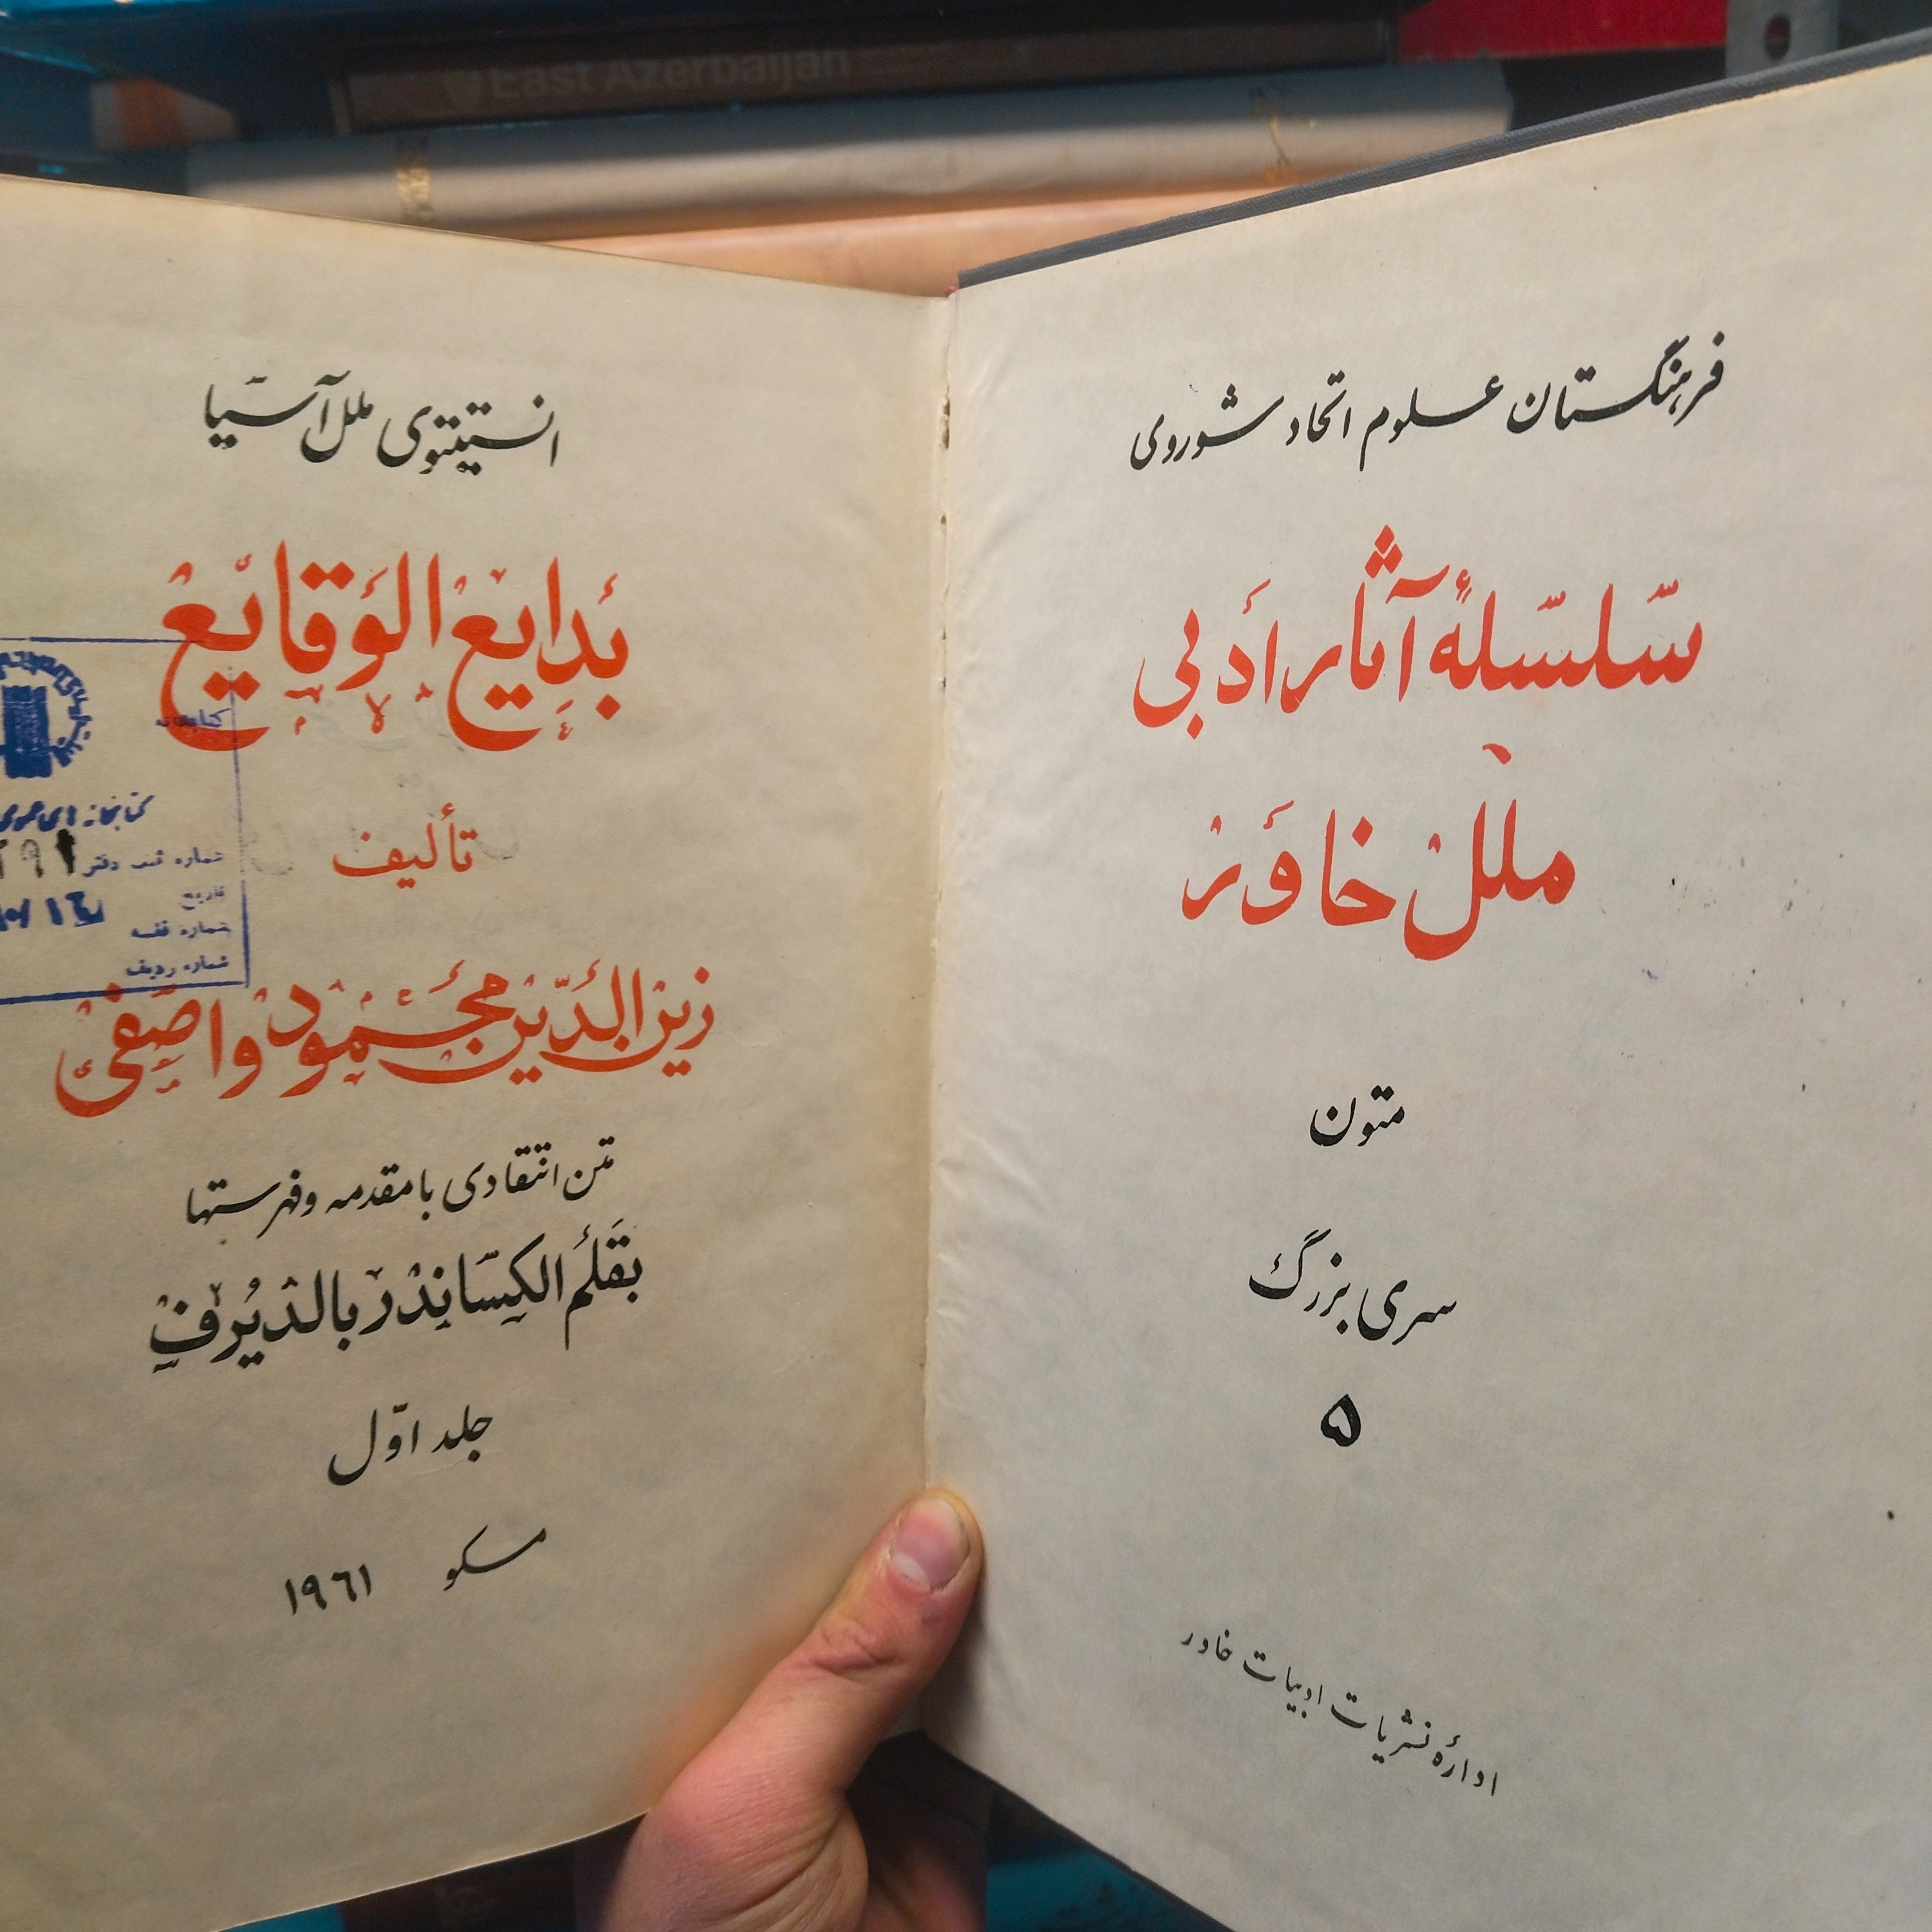 East Azerbaijan
فرهنگستان علوم اتحاد شوروی
سلسلهٔ آثار ادبی
ملل خاور
متون
سری بزرگ
۵
ادارهٔ نشریات ادبیات خاور
انستیتوی ملل آسیا
بَدایع الوَقایع
تألیف
زین الدّین محمود واصفی
متن انتقادی با مقدمه و فهرستها
بقلم الکساندر بالدیرف
جلد اوّل
مسکو ۱۹٦۱
کتابخانه
کتابخانه های عمومی
شماره ثبت دفتر
تاریخ
شماره قفسه
شماره ردیف